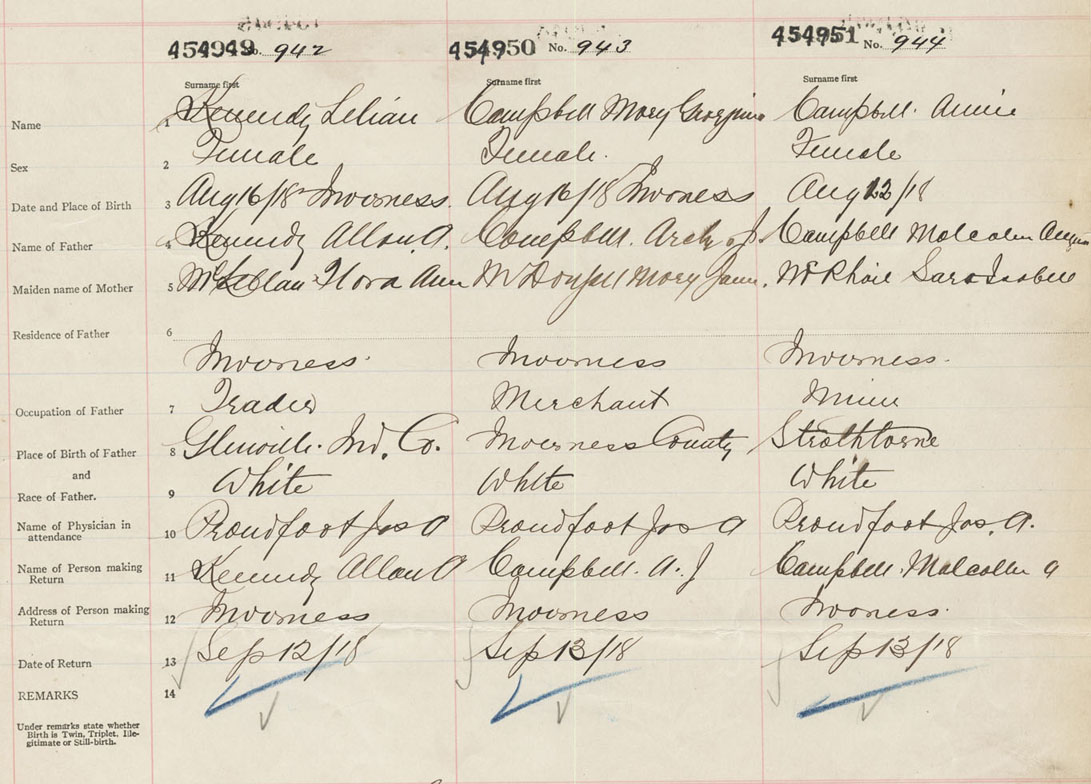 454949 No. 942 454950 No. 943 454951 No. 944
Surname first Surname first Surname first
Name 1 Kennedy Lilian Campbell Mary Campbell. Annie
Sex 2 Female Female. Female
Date and Place of Birth 3 Aug 16/18 Inverness. Aug 16/18 Inverness Aug /18
Name of Father 4 Kennedy Allan A. Campbell. Arch J. Campbell Malcolm
Maiden name of Mother 5 McLellan Flora Ann Mary Jane. McPhail Sara Isabell
Residence of Father 6 Inverness. Inverness Inverness.
Occupation of Father 7 Trader Merchant Miner
Place of Birth of Father 8 Glenville. Inv. Co. Inverness County Strathlorne
and
Race of Father. 9 White White White
Name of Physician in 10 Proudfoot Jos A Proudfoot Jos A Proudfoot Jos. A.
attendance
Name of Person making 11 Kennedy Allan A Campbell. A. J Campbell. Malcolm A
Return
Address of Person making 12 Inverness Inverness Inverness.
Return
Date of Return 13 Sep 12/18 Sep 13/18 Sep 13/18
REMARKS 14
Under remarks state whether
Birth is Twin, Triplet, Ille-
gitimate or Still-birth.